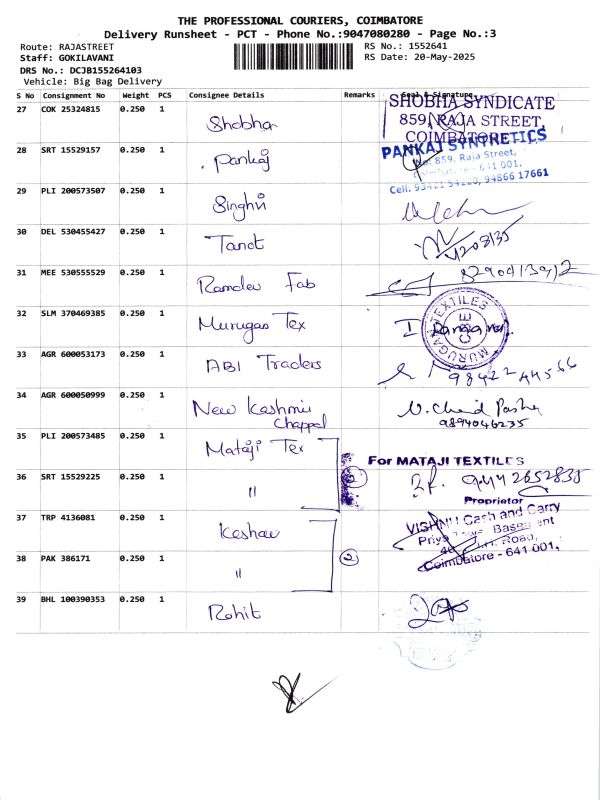 THE PROFESSIONAL COURIERS, COIMBATORE
Delivery Runsheet - PCT - Phone No.:9047080280 - Page No.:3
Route: RAJASTREET
RS No.: 1552641
Staff: GOKILAVANI
RS Date: 20-May-2025
DRS No.: DCJB155264103
Vehicle: Big Bag Delivery
S No Consignment No Weight PCS Consignee Details Remarks Seal & Signature
27 COK 25324815 0.250 1 Shobha
SHOBHA SYNDICATE
859, RAJA STREET,
COIMBATORE
28 SRT 15529157 0.250 1 Pankaj
PANKAJ SYNTRETICS
No: 859, Raja Street,
Coimbatore - 641 001.
Cell: 93421 54220, 94866 17661
29 PLI 200573507 0.250 1 Singhvi
30 DEL 530455427 0.250 1 Tanot
31 MEE 530555529 0.250 1 Ramdev Fab
32 SLM 370469385 0.250 1 Murugas Tex
MURUGAN TEXTILES
33 AGR 600053173 0.250 1 ABI Traders
98422 44566
34 AGR 600050999 0.250 1 New Kashmir
Chappal
N. Chand Pasha
9894046235
35 PLI 200573485 0.250 1 Mataji Tex
For MATAJI TEXTILES
36 SRT 15529225 0.250 1 " 2
9442652835
Proprietor
37 TRP 4136081 0.250 1 Keshav
VISHNU Cash and Carry
Basement
Road,
Coimbatore - 641 001.
38 PAK 386171 0.250 1 " 2
39 BHL 100390353 0.250 1 Rohit